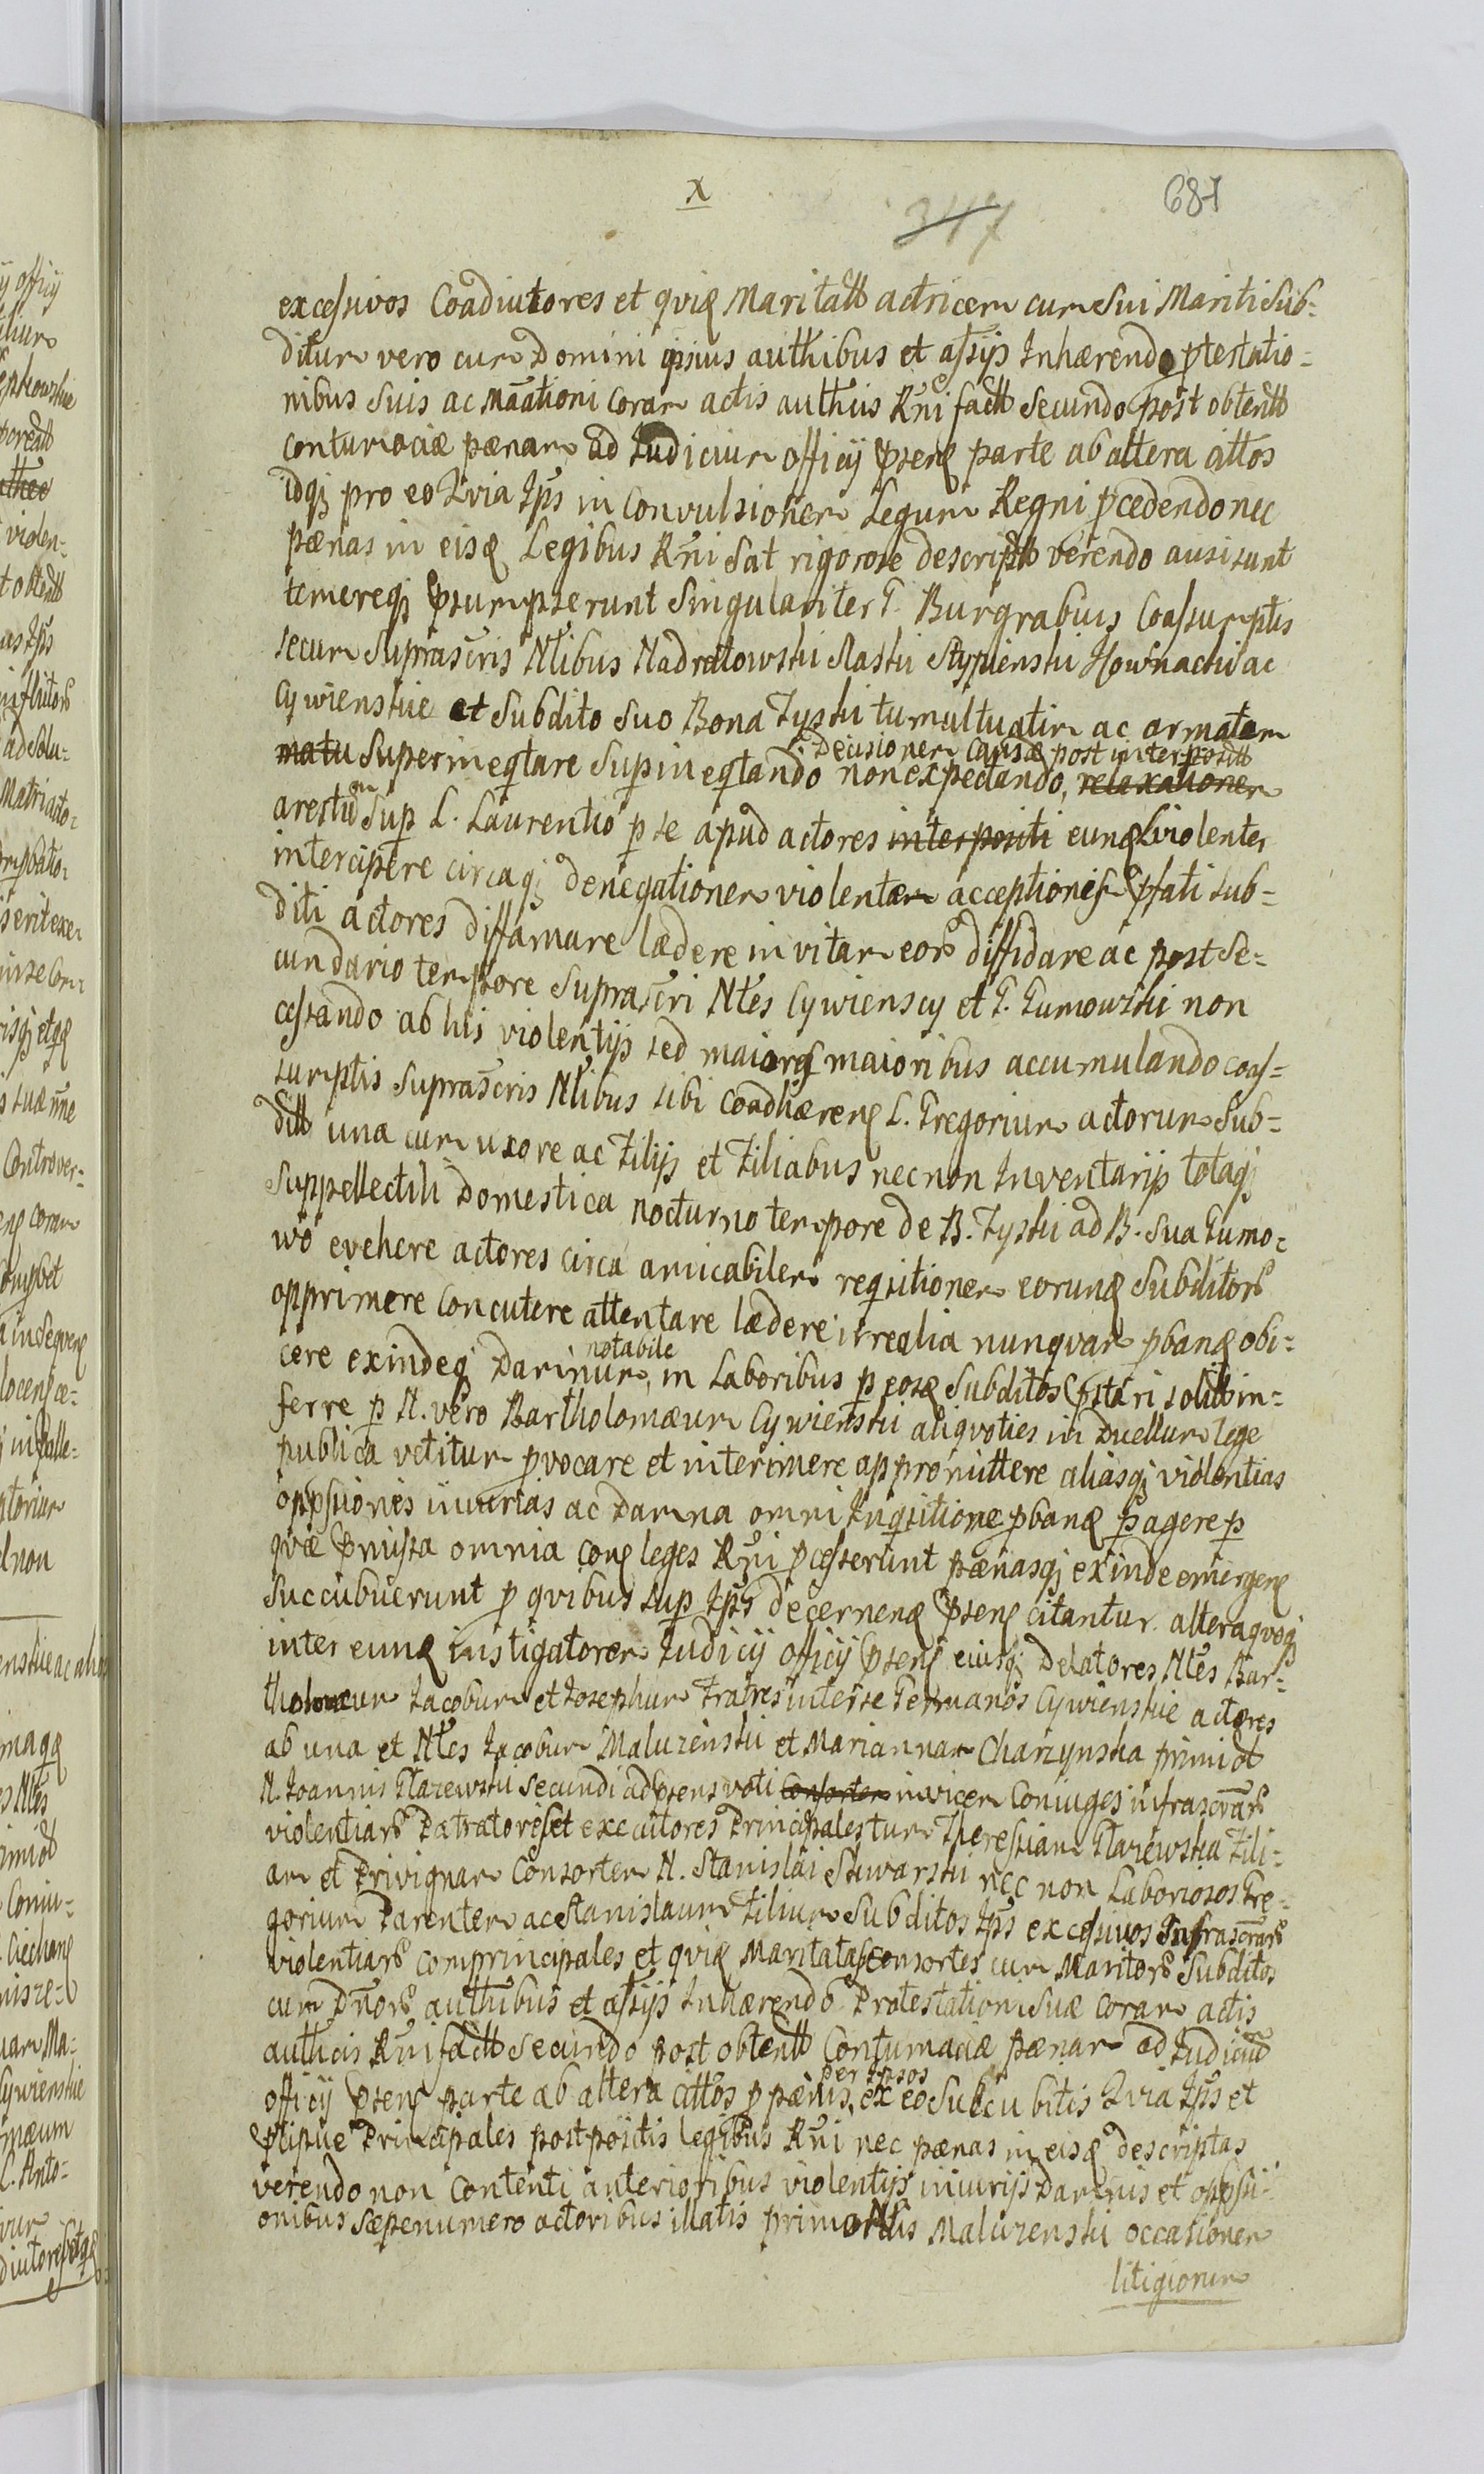 X
347
687
excessivos Coadiutores et qviq Maritatt actricem cum Sui Mariti Sub=
ditum vero cum Domini ipsius authibus et assijs Inhærendo ptestatio=
nibus Suis ac Maãtioni Coram actis authcis Rñi factt Secundo post obtentt
contumaciæ pænam ad Iudicium officij psenς parte ab altera cittos
idqȝ pro eo qvia Ips in Convulsionem Legum Regni pcedendo nec
pænas in eisq Legibus Rñi Sat rigorose descriptt verendo ausi sunt
temereqȝ psumpserunt Singulariter G. Burgrabius Coassumptis
secum Suprascris Ntibus Nadratowski Slaski Stypienski Hownacki ac
Cywienskie et Subdito Suo Bona Zyski tumultuatim ac armatam
matu Superineqtare Supineqtando non expectando, relaxationem
Decisionem Causæ post interpositt
arestum Sup L. Laurentio p se apud actores interpositi eunq violenter
intercipere circaqȝ denegationem violentam acceptionis pfati sub=
diti actores diffamare lædere in vitam eorʒ diffidare ac post Se=
cundario tempore Suprascri Ntes Cywienscy et G. Gumowski non
cessando ab his violentijs sed maiorς maioribus accumulando coas=
sumptis suprascris Ntibus sibi coadhærenς L. Gregorium actorum Sub=
ditt una cum uxore ac Filijs et Filiabus nec non Inventarijs totaqȝ
Suppellectili Domestica nocturno tempore de B. Zyski ad B. Sua Gumo=
wo evehere actores circa amicabilem reqsitionem eorunq Subditorʒ
opprimere Concutere attentare lædere irrealia nunqvam pbanq obi=
cere exindeqȝ Damnum, in Laboribus p eosq Subditos pstari solitt in=
notabile
ferre p N. vero Bartholomæum Cywienski aliqvoties in Duellum lege
publica vetitum pvocare et interimere appromittere aliasqȝ violentias
oppsiones iniurias ac Damna omni Inqsitione pbanq pagere p
qvæ pmissa omnia conς leges Rñi pcesserunt pænasqȝ exinde emergenς
Succubuerunt p qvibus sup Ips decernenq psenς citantur. altera qvoqȝ
inter eunq instigatorem Iudicij officij psenς eiusqȝ Delatores Ntes Bar=
tholomæum Iacobum et Iosephum Fratres inter se Germanos Cywienskie actores
ab una et Ntes Iacobum Maluzenski et Mariannam Charzynska primi ot
N. Ioannis Glazewski Secundi ad psens voti Consortem invicem Coniuges infrascrarʒ
violentiarʒ Patratores et executores Principales tum Theressiam Glazewska Fili=
am et Privignam Consortem N. Stanislai Skwarski nec non Laboriosos Gre=
gorium Parentem ac Stanislaum Filium Subditos Ips excessivos Infrascrarʒ
violentiarʒ comprincipales et qviq Maritatas Consortes cum Maritorʒ Subditos
cum Dnorʒ authibus et assijs Inhærendo Protestationi Suæ coram actis
authcis Rñi factt Secundo post obtentt Contumaciæ pænam ad Iudicium
officij psenς parte ab altera cittos p pænis, ex eo Succubitis qvia Ips et
per Ipsos
pcipue Principales postpositis legibus Rñi nec pænas in eisq descriptas
verendo non Contenti anterioribus violentijs iniurijs Damnis et oppsi=
onibus Sæpenumero actoribus illatis primo Ntis Maluzenski occasionem
litigiorum